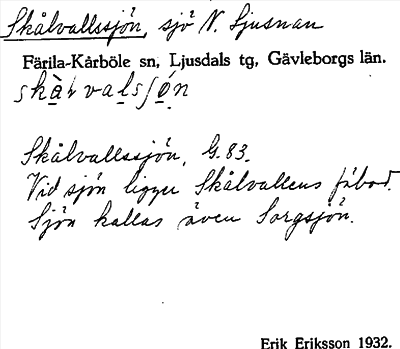 Skålvallssjön, sjö N. Ljusnan
Färila-Kårböle sn, Ljusdals tg, Gävleborgs län.
skàlvalsʃón
Skålvallssjön, G. 83.
Vid sjön ligger Skålvallens fäbod.
Sjön kallas även Sorgsjön.
Erik Eriksson 1932.